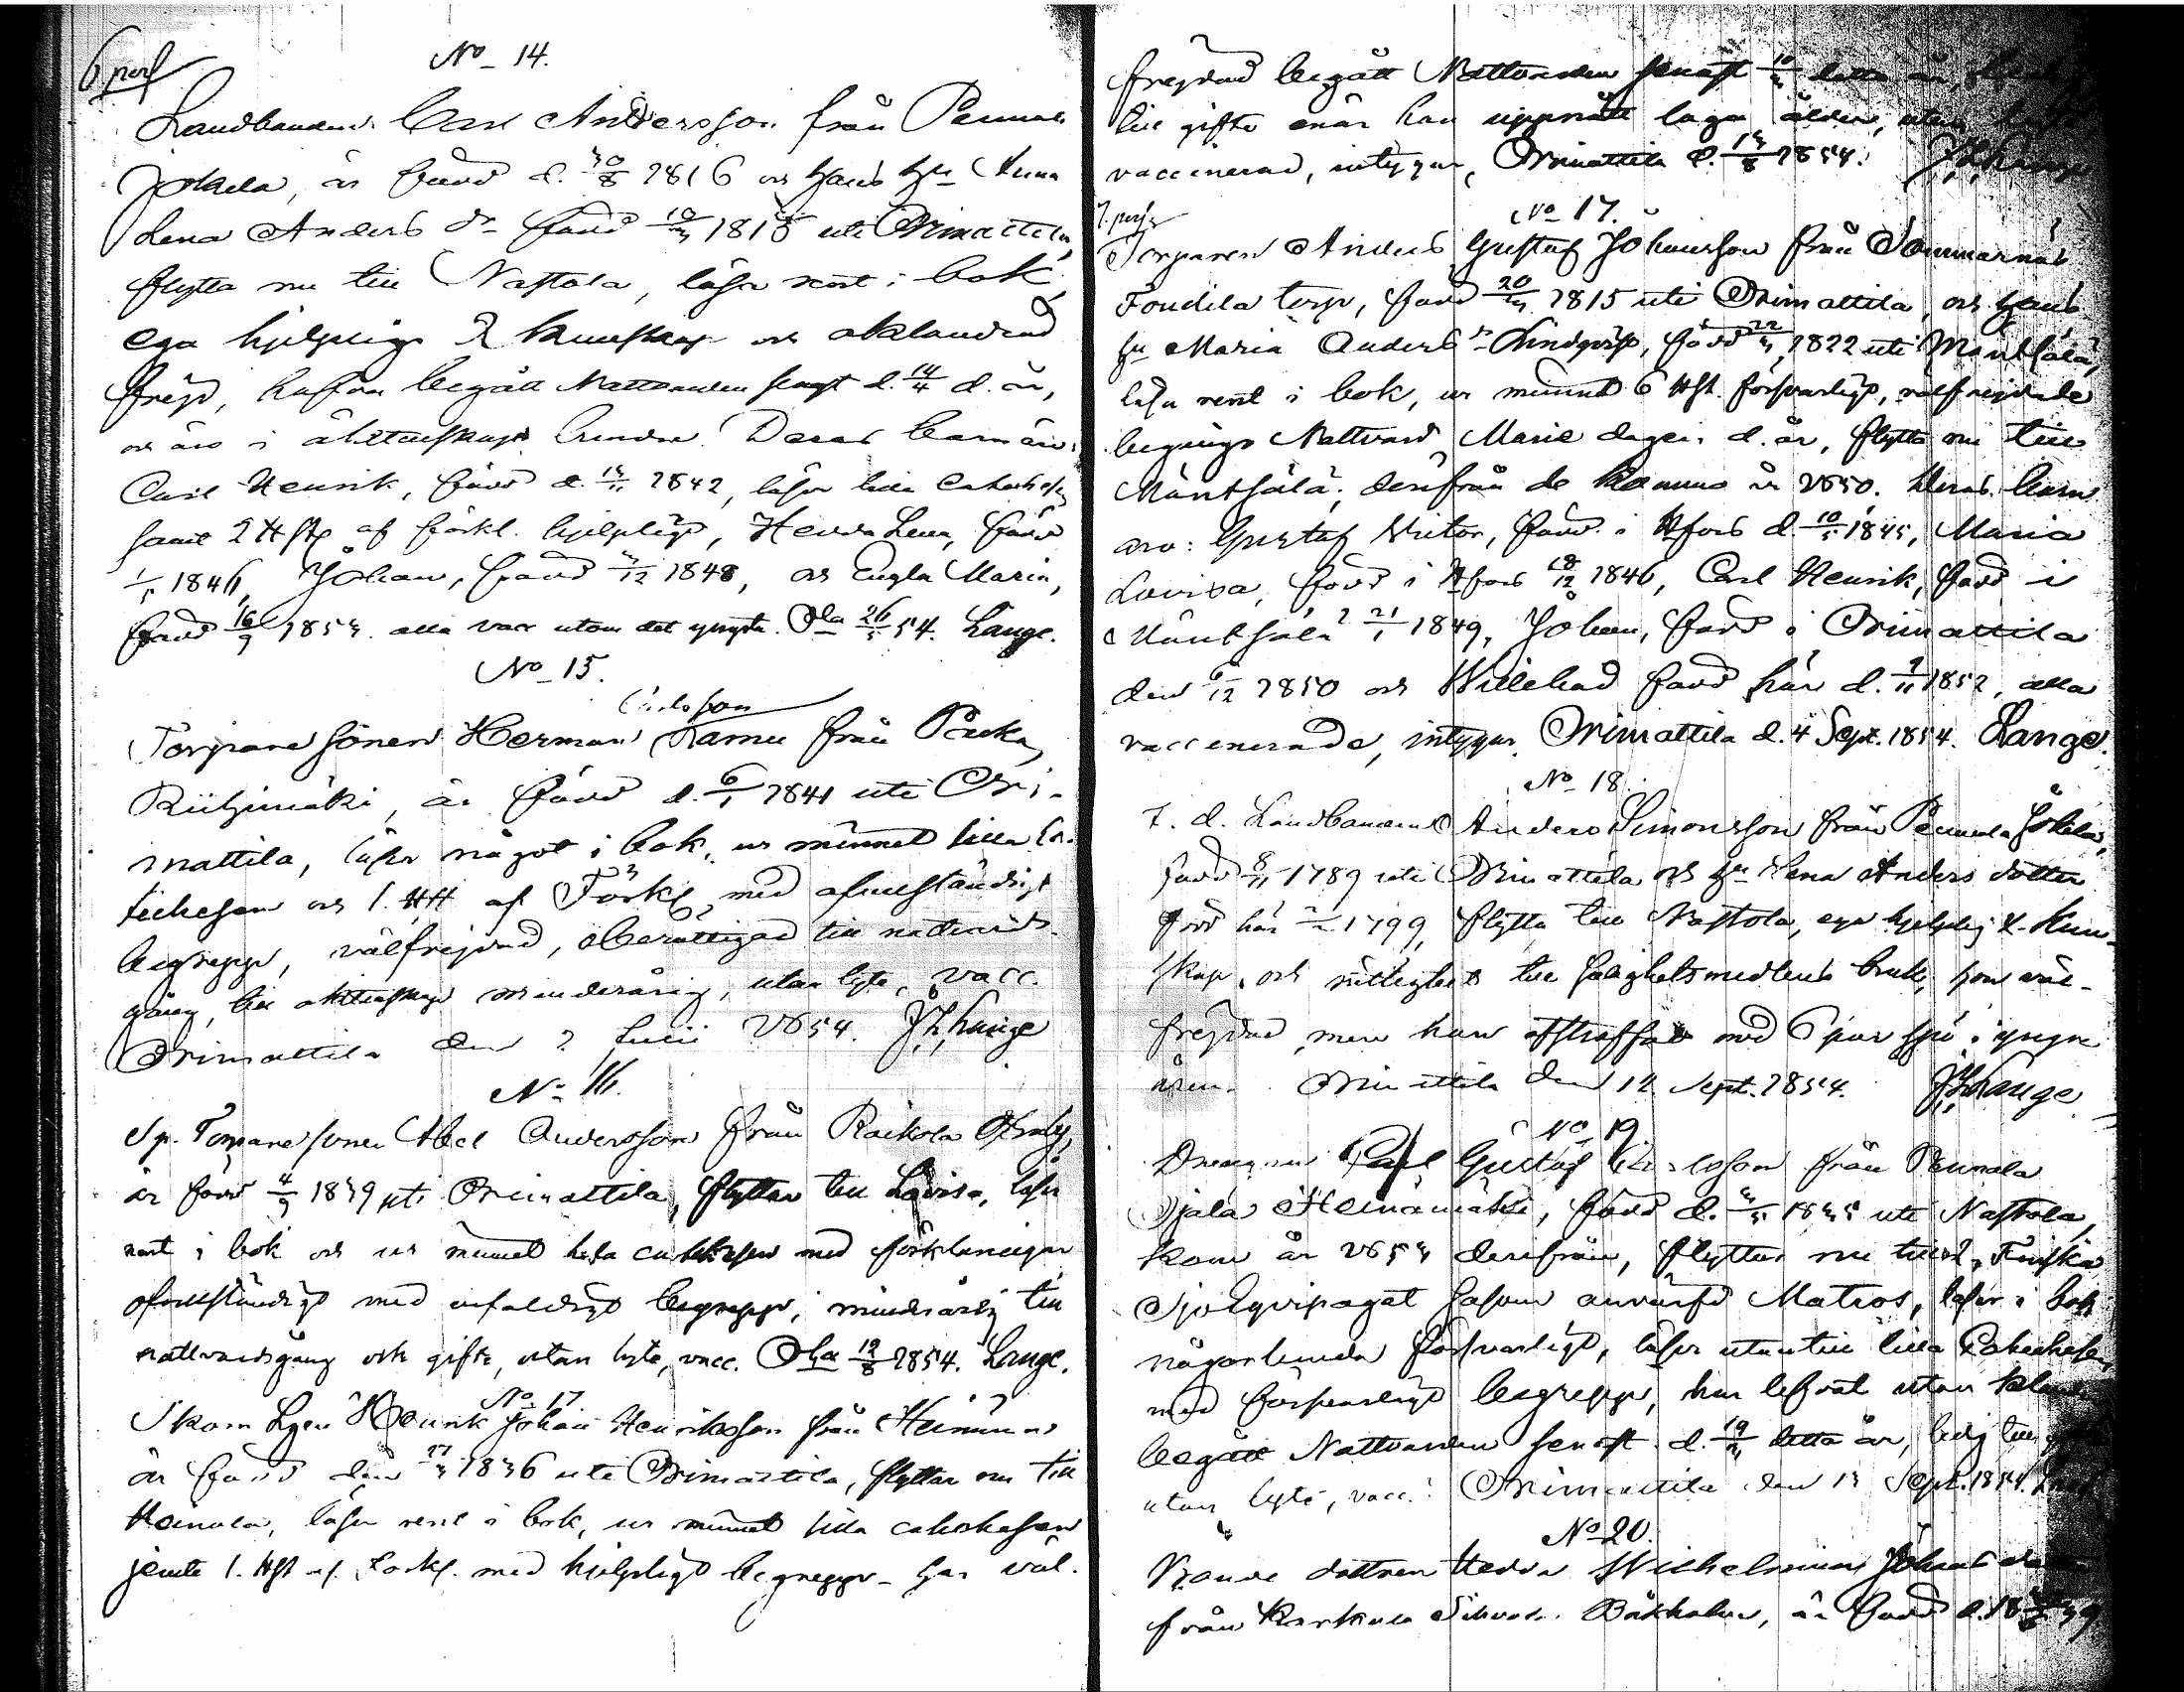 6 pers
No 14.
Landbonden Carl Andersson från Pennala
Jokela, är född d. 30/8 1816 och hans hu Anna
Lena Anders dr född 10/3 1815 uti Orimattila,
flytta nu till Nastola, läsa rent i bok,
ega hjelplig kunskap och oklandrad
frejd, hafva begått Nattvarden senast d. 14/4 d. år,
och äro i äktenskap bundne. Deras barn äro:
Carl Henrik, född d. 1842, läser lilla Cateches
samt 2 Hst af förkl. hjelpligt, Hedda Lena, född
1/5 1846, Johan, född 3/12 1848, och Engla Maria,
född 16/9 1853. alla vacc utom det yngsta. Ola 26/5 54. Lange.
No 15.
Carlsson
Torpare sonen Herman Lamu från
Riihimäki, är född d. 6/1 1841 uti Ori-
mattila, läser något i bok, ur minnet lilla Ca-
techesen och 1. Ht af Förkl. med ofullständigt
begrepp, välfrejdad, oberättigad till nattvards-
gång, till äktenskap minderårig, utan lyte, vacc.
Orimattila den 2 Junii 1854. J. H. Lange
No 16.
Sp. Torpare sonen Abel Andersson från Räikölä
är född 4/9 1839 uti Orimattila, flyttar till Lovisa, läser
rent i bok och ur minnet hela catechesen med förklaringar
ofullständigt med enfaldigt begrepp, minderårig till
nattvardsgång och gifte, utan lyte, vacc. Ola 12/8 1854. Lange.
No 17
Skom Lgen Henrik Johan Henriksson från Heinämaa
är född den 27/3 1836 uti Orimattila, flyttar nu till
Heinola, läser rent i bok, ur minnet lilla catechesen
jemte 1. Hst af Förkl. med hjelpligt begrepp. har väl-
frejdad begått Nattvarden senast 10/4 detta år,
till gifte enär han uppnått laga ålder, utan lyte
vaccinerad, intygar, Orimattila d. 13/8 1854. J. H. Lange
7. pers
No 17.
Torparen Anders Gustaf Johansson från Sommarnäs
Toudila torp, född 20/3 1815 uti Orimattila, och hans
hu Maria Anders dr Lindqvist, född 22/3 1822 uti Mäntsälä,
läsa rent i bok, ur minnet 6 Hst. försvarligt, välfrejdade
begingo Nattvard Marie dagen d. år, flytta nu till
Mäntsälä; derifrån de kommo år 1850. Deras barn
äro: Gustaf Victor, född i Hfors d. 10/5 1845, Maria
Lovisa, född i Hfors 18/12 1846, Carl Henrik, född i
Mäntsälä 21/1 1849, Johan, född i Orimattila
den 6/12 1850 och Willehad född här d. 7/11 1852, alla
vaccinerade, intygar. Orimattila d. 4 Sept. 1854. Lange.
No 18.
F. d. Landbonden Anders Simonsson från Pennala Jokela,
född 8/11 1789 uti Orimattila och hu Lena Anders dotter
född här 1799, flytta till Nastola, ega hjelplig X. kun-
skap, och rättighet till salighetsmedlens bruk, hon väl-
frejdad, men han afstraffad med 6 par spö i yngre
åren. Orimattila den 12 Sept. 1854. J. H. Lange
No 19.
Drengen Carl Gustaf Carlsson från Pennala
Ojala Heinämäki, född d. 1835 uti Nastola,
kom år 1853 derifrån, flyttar nu till Finska
Sjöeqvipaget såsom anvärfd Matros, läser i bok
någorlunda försvarligt, läser utantill lilla Catechesen,
med försvarligt begrepp, har lefvat utan klander
begått Nattvarden senast d. 19/3 detta år, ledig till
utan lyte, vacc. Orimattila den 13 Sept. 1854.
No 20.
Bonde dottren Hedda Wilhelmina Johans dotter
från Karkula Backholm, är född d.